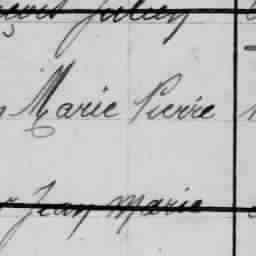 Julien
Marie Pierre
Jean Marie